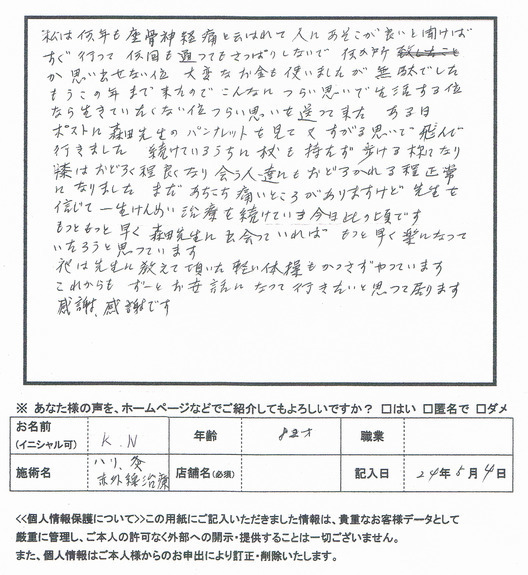 私は何年も座骨神経痛と云はれて人にあそこが良いと聞けば
すぐ行って何回も通ってもさっぱりしないで何ヶ所
か思い出せない位 大変なお金も使いましたが無駄でした
もうこの年まで来たのでこんなにつらい思いで生活する位
なら生きていたくない位つらい思いを送って来た ある日
ポストに森田先生のパンフレットを見て すがる思いで飛んで
行きました 続けているうちに杖も持たず歩ける様になり
腰はおどろく程良くなり会う人達にもおどろかれる程正常
になりました まだあちこち痛いところがありますけど先生を
信じて一生けんめい治療を続けている今日此の頃です
もっともっと早く森田先生に出会っていれば もっと早く楽になって
いただろうと思っています
私は先生に教えて頂いた軽い体操もかかさずやっています
これからも ずーとお世話になって行きたいと思って居ります
感謝、感謝です
※ あなた様の声を、ホームページなどでご紹介してもよろしいですか？ □はい □匿名で □ダメ
お名前 (イニシャル可) K.N 年齢 職業
施術名 ハリ、灸 赤外線治療 店舗名(必須) 記入日 24年5月4日
<<個人情報保護について>>この用紙にご記入いただきました情報は、貴重なお客様データとして
厳重に管理し、ご本人の許可なく外部への開示・提供することは一切ございません。
また、個人情報はご本人様からのお申出により訂正・削除いたします。